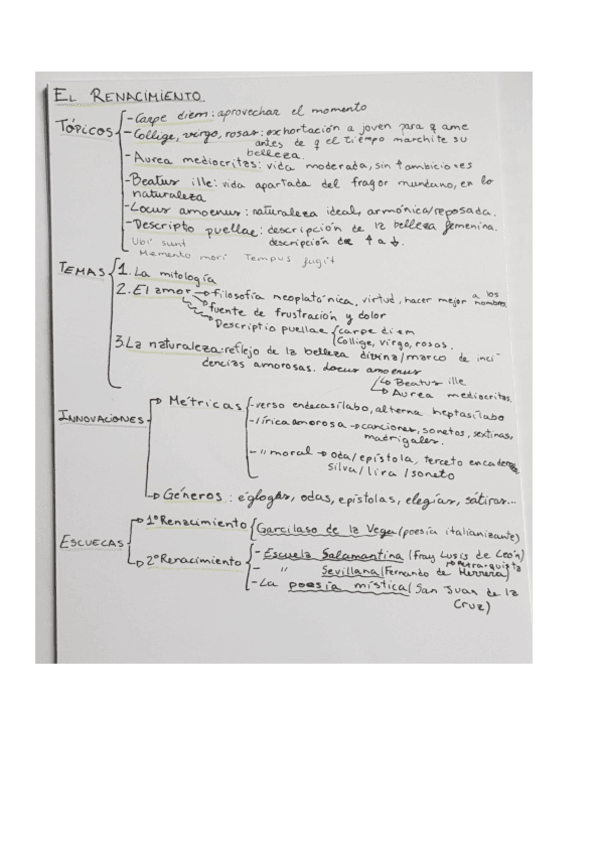 EL RENACIMIENTO.
TÓPICOS
-Carpe diem: aprovechar el momento
-Collige, virgo, rosas: exhortación a joven para q ame
antes de q el tiempo marchite su
belleza.
-Aurea mediocritas: vida moderada, sin ↑ambiciones
-Beatus ille: vida apartada del fragor mundano, en la
naturaleza
-Locus amoenus: naturaleza ideal, armónica/reposada.
-Descriptio puellae: descripción de la belleza femenina.
Ubi sunt descripción de ↑ a ↓.
Memento mori Tempus fugit
TEMAS
1. La mitología
2. El amor → filosofía neoplatónica, virtud, hacer mejor a los
hombres.
→ fuente de frustración y dolor
→ Descriptio puellae carpe diem
Collige, virgo, rosas.
3. La naturaleza: reflejo de la belleza divina/marco de inci
dencias amorosas. Locus amoenus
→ Beatus ille
→ Aurea mediocritas.
INNOVACIONES
→ Métricas -verso endecasílabo, alterna heptasílabo
-lírica amorosa → canciones, sonetos, sextinas,
madrigales.
- " moral → oda/epístola, terceto encade
silva/lira/soneto
→ Géneros: églogas, odas, epístolas, elegías, sátiras...
ESCUELAS
→ 1º Renacimiento Garcilaso de la Vega (poesía italianizante)
→ 2º Renacimiento - Escuela Salamantina (Fray Luis de León)
- " Sevillana (Fernando de Herrera) → petrarquista
- La poesía mística (San Juan de la
Cruz)